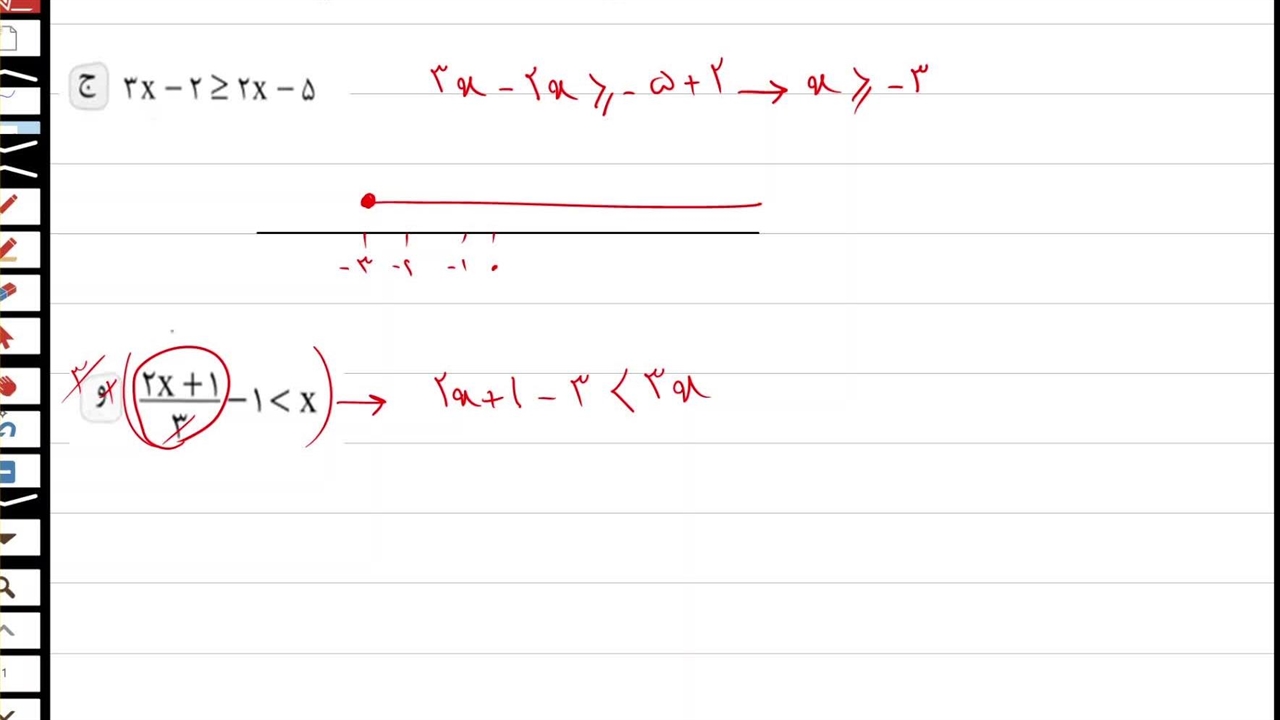 ج ۳x − ۲ ≥ ۲x − ۵ ۳x − ۲x ≥ −۵ + ۲ → x ≥ −۳
−۳ −۲ −۱ ۰
۳ × ( (۲x + ۱)/۳ − ۱ < x ) → ۲x + ۱ − ۳ < ۳x